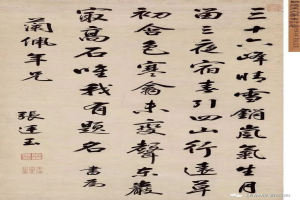 三十六峰晴雪銷嵐氣生月
留三夜宿春引四山行遠草
初含色寒禽未變聲東巖
最高石唯我有題名 書為
蘭佩年兄
張廷玉